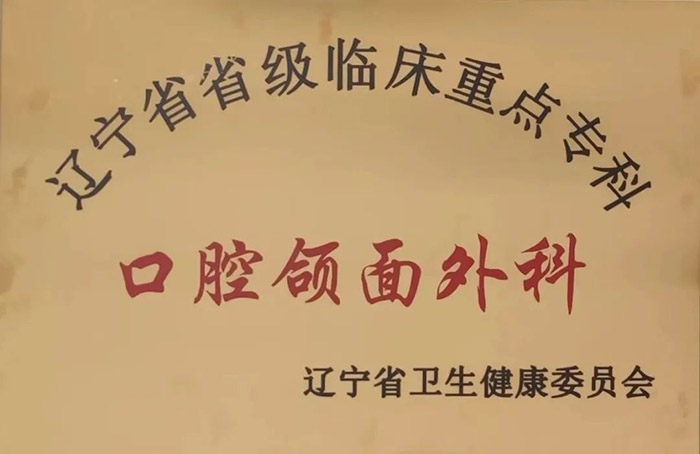 辽宁省省级临床重点专科
口腔颌面外科
辽宁省卫生健康委员会